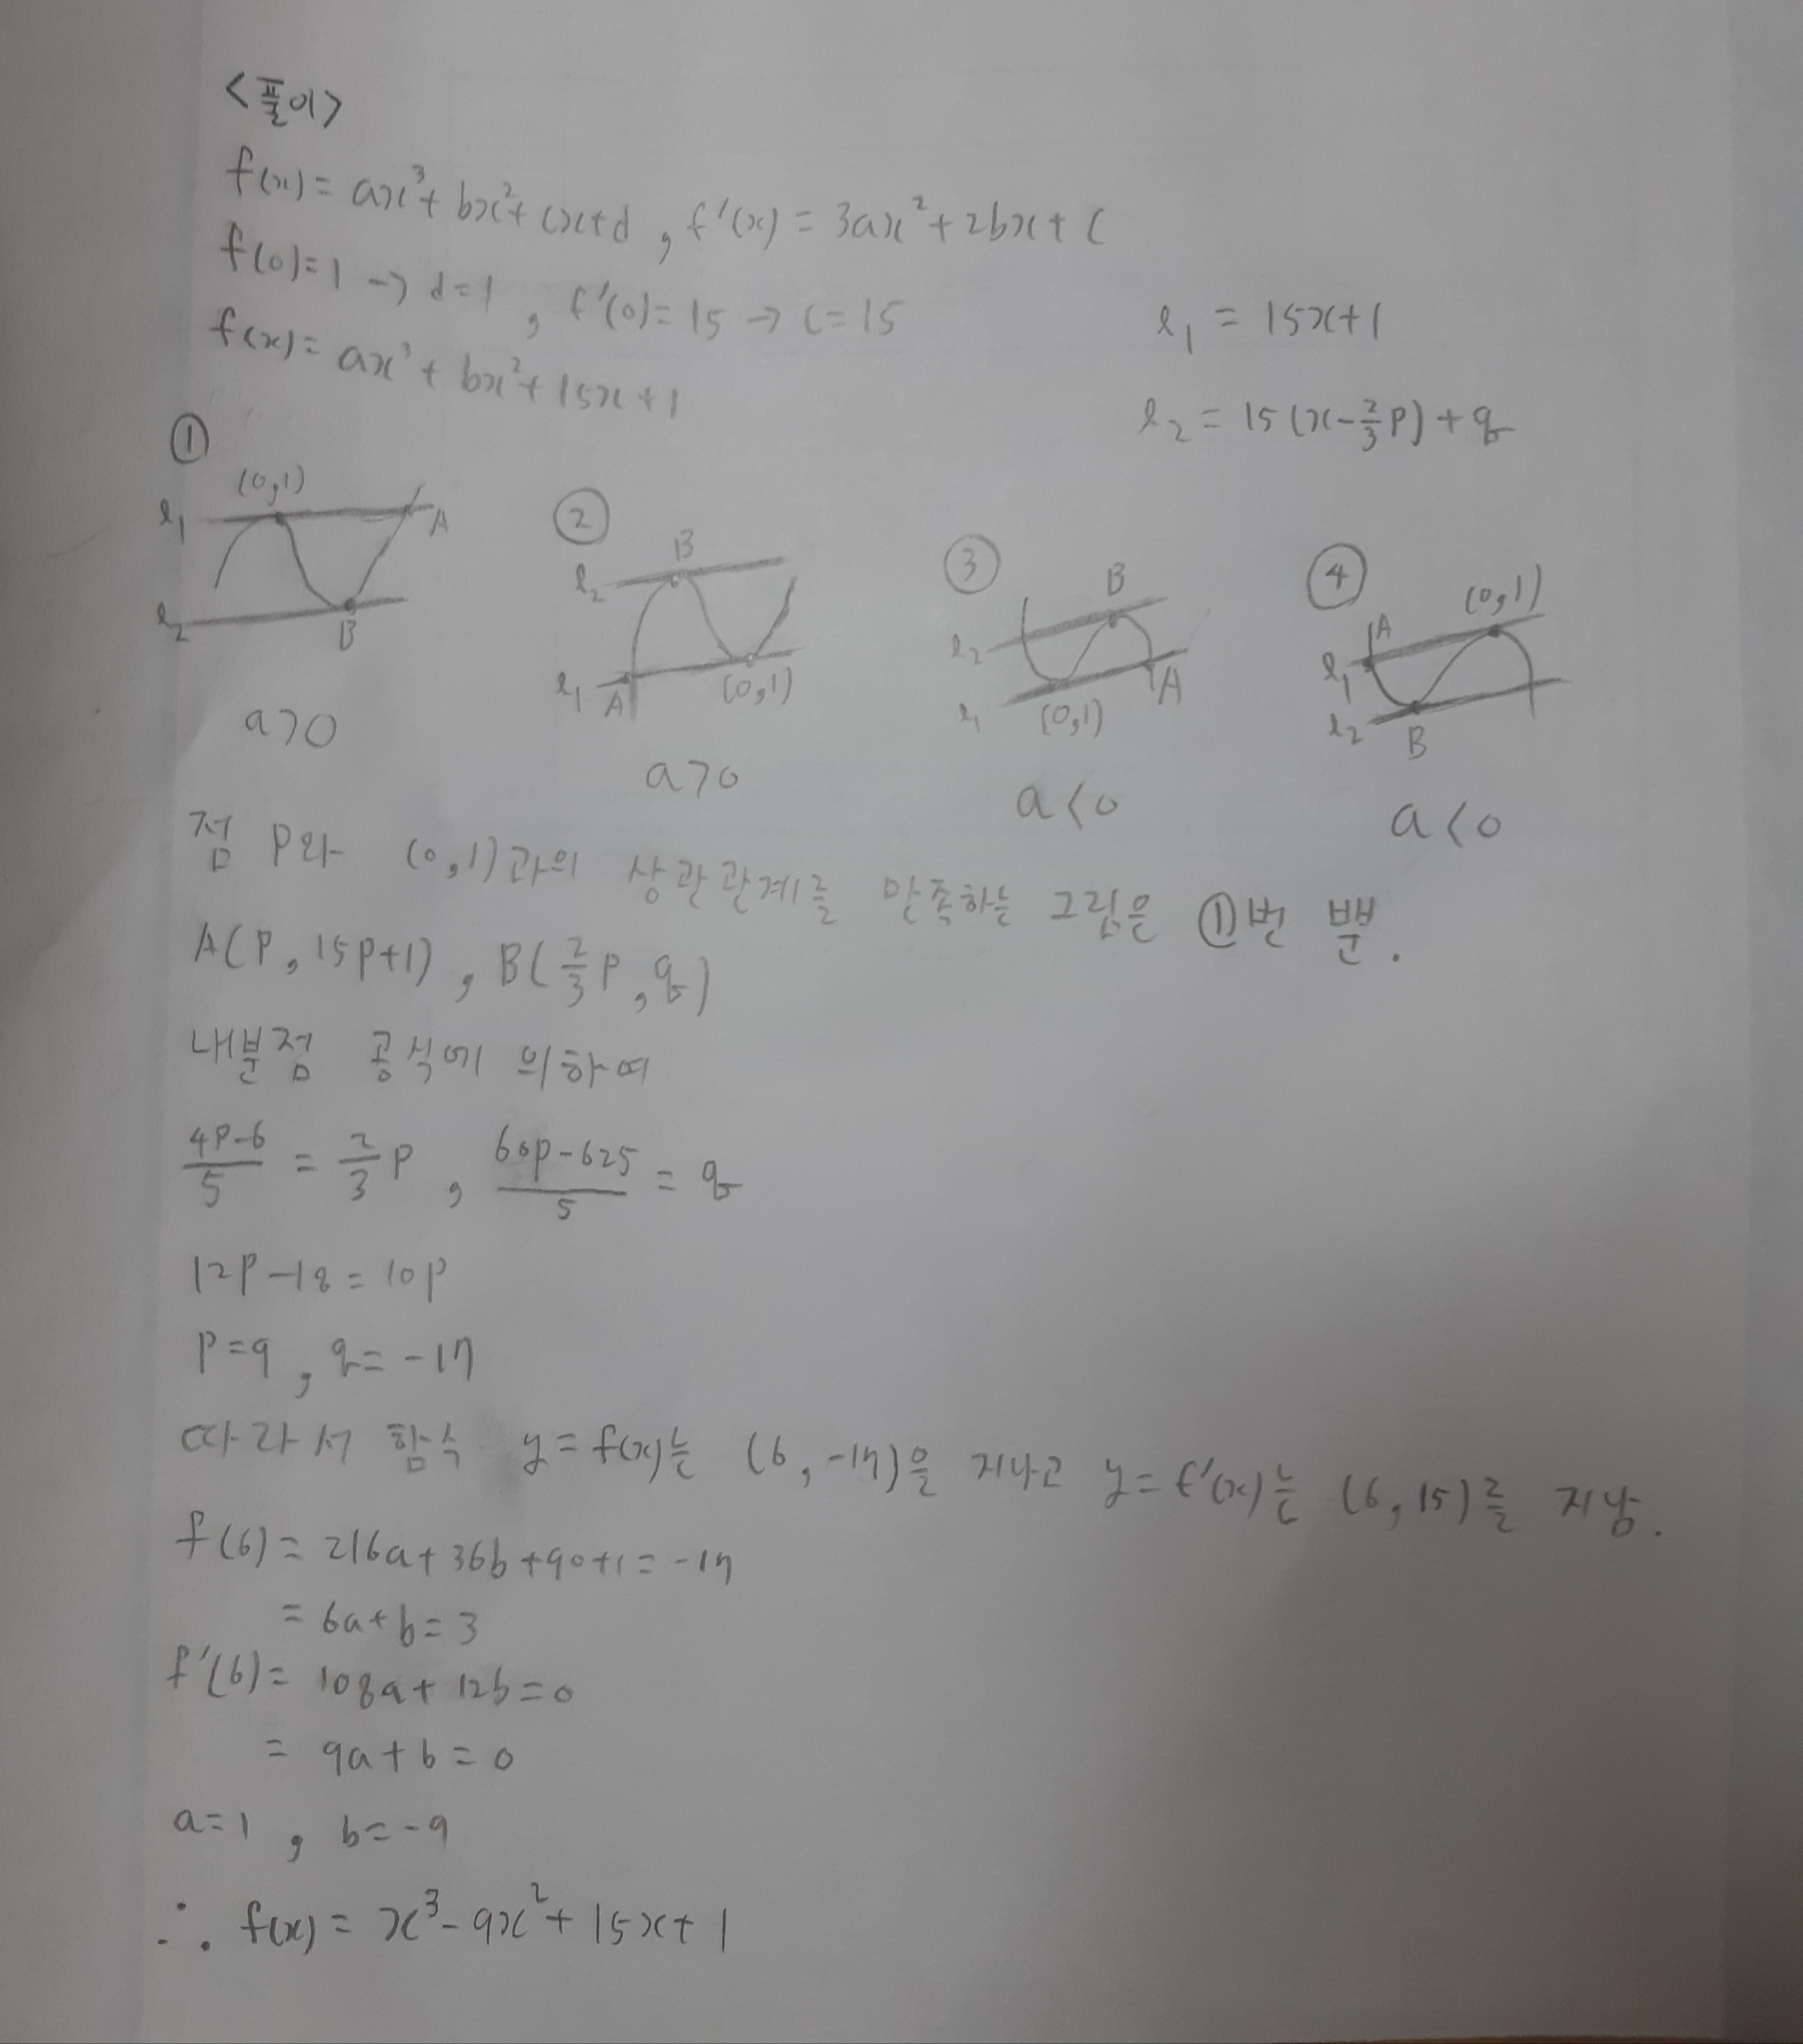 <풀이>
f(x) = ax³+bx²+cx+d, f'(x) = 3ax²+2bx+c
f(0)=1 → d=1, f'(0)=15 → c=15
f(x) = ax³+bx²+15x+1
l₁ = 15x+1
l₂ = 15(x-2/3p)+q
①
(0,1)
l₁
A
l₂
B
a>0
②
B
l₂
l₁
A
(0,1)
a>0
③
B
l₂
l₁
(0,1)
A
a<0
④
(0,1)
A
l₁
l₂
B
a<0
점 P와 (0,1)과의 상관관계를 만족하는 그림은 ①번 뿐.
A(p, 15p+1), B(2/3p, q)
내분점 공식에 의하여
(4p-6)/5 = 2/3p, (60p-625)/5 = q
12p-18=10p
p=9, q=-17
따라서 함수 y=f(x)는 (6, -17)을 지나고 y=f'(x)는 (6, 15)를 지남.
f(6) = 216a+36b+90+1=-17
= 6a+b=3
f'(6) = 108a+12b=0
= 9a+b=0
a=1, b=-9
∴ f(x) = x³-9x²+15x+1